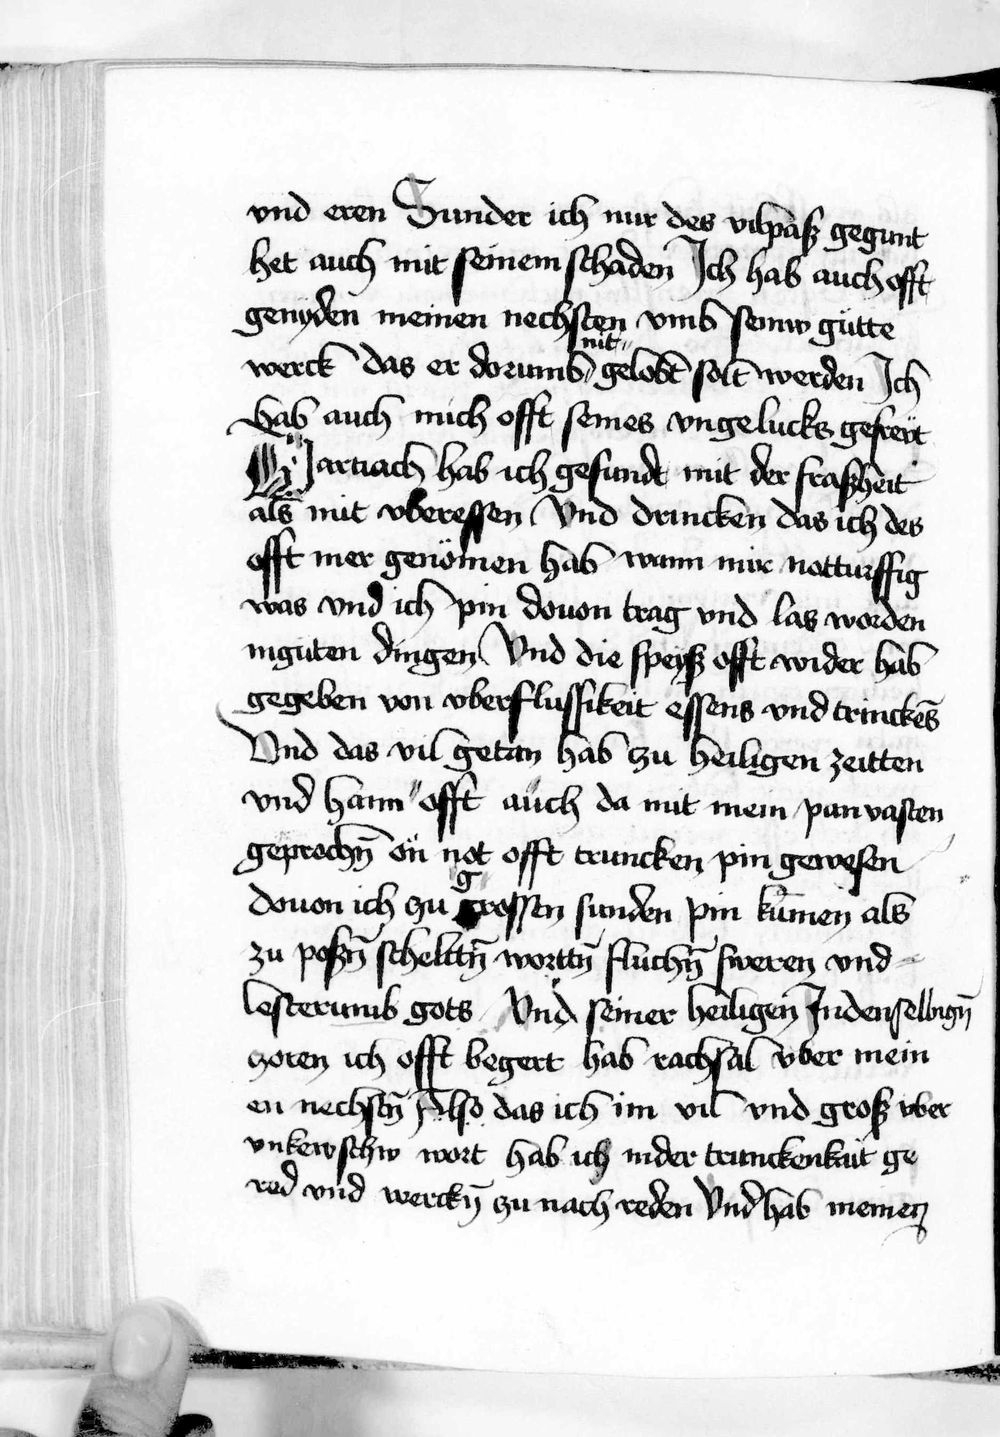 vnd eren Sunder ich mir des vilpaß gegunt
het auch mit seinem schaden Ich hab auch offt
genyden meinen nechsten vmb seinw gütte
werck das er dorumb nit gelobt solt werden Ich
hab auch mich offt seines vngelucks gefreüt
Darnach hab ich gesundt mit der fraßheit
als mit vberessen Vnd drincken das ich des
offt mer genömen hab wann mir notturffig
was vnd ich pin douon trag vnd las worden
in guten dingen Vnd die speyß offt wider hab
gegeben von vberflussikeit essens vnd trinckēs
Vnd das vil getan hab zu heiligen zeitten
vnd hann offt auch da mit mein panvasten
geprochn̄ on not offt truncken pin gewesen
douon ich zu grossen sunden pin kūmen als
zu poßn̄ scheltn̄ worttn̄ fluchn̄ sweren vnd
lesterumb gots Vnd seiner heiligen In denselbign̄
zoren ich offt begert hab rachsal vber mein
en nechstn̄ Also das ich im vil vnd groß vber
vnkewschw wort hab ich in der trunckenkait ge
red vnd werckn̄ zu nach reden Vnd hab meinen